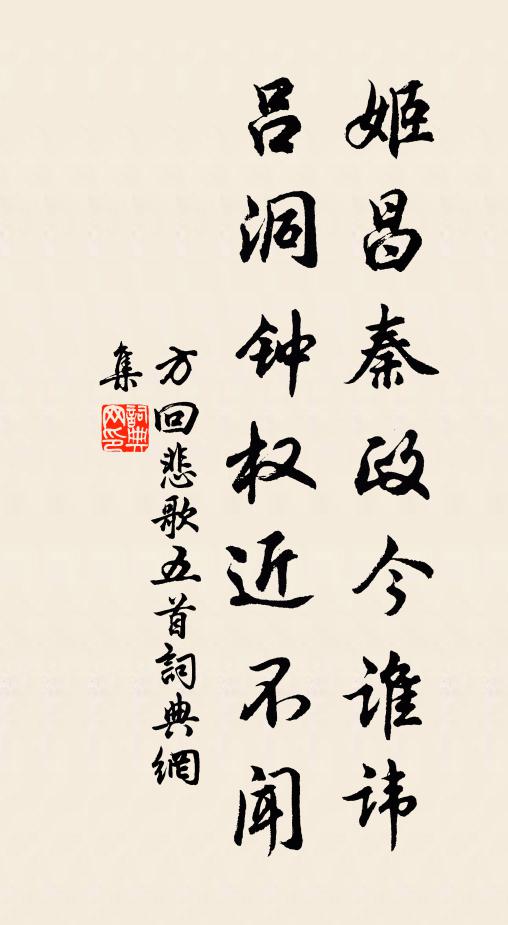 姬昌秦政今谁讳
吕洞钟权近不闻
方回悲歌五首詞典網
集
詞典网印